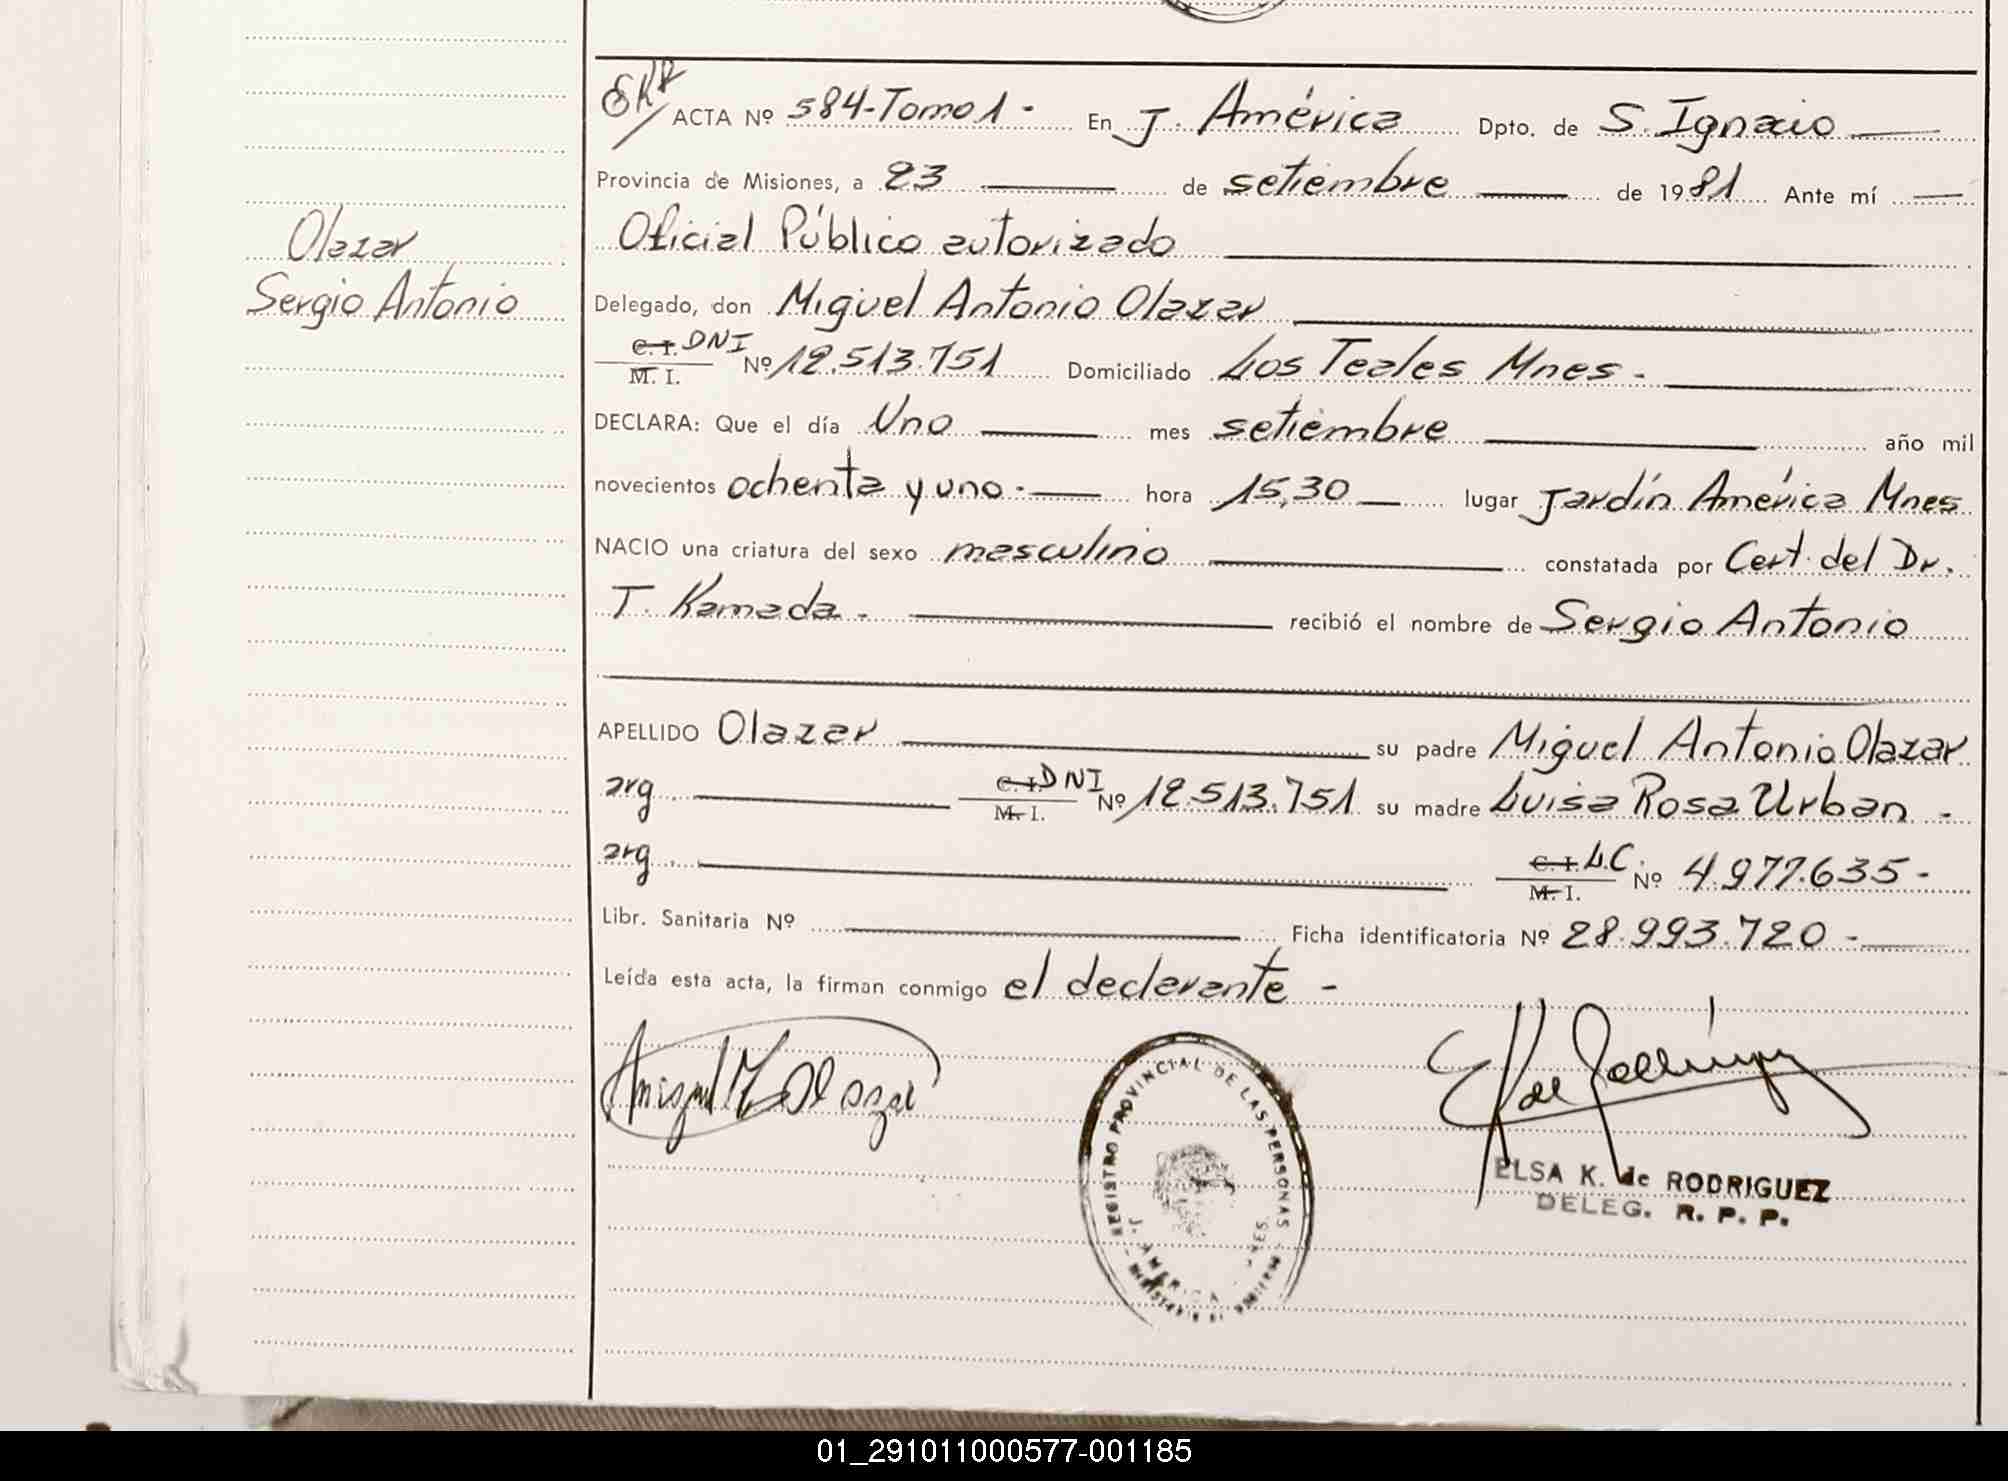 SKR
ACTA Nº 584-Tomo 1 - En J. América Dpto. de S. Ignacio
Provincia de Misiones, a 23 de setiembre de 1981 Ante mí
Oficial Público autorizado
Olazar
Sergio Antonio
Delegado, don Miguel Antonio Olazar
C. I. DNI
M. I. Nº 12.513.751 Domiciliado Los Teales Mnes.
DECLARA: Que el día Uno mes setiembre año mil
novecientos ochenta y uno. hora 15,30 lugar Jardín América Mnes
NACIO una criatura del sexo masculino constatada por Cert. del Dr.
T. Kamada. recibió el nombre de Sergio Antonio
APELLIDO Olazar su padre Miguel Antonio Olazar
arg. C. I. DNI M. I. Nº 12.513.751 su madre Luisa Rosa Urban -
arg. C. I. L.C. M. I. Nº 4.977.635 -
Libr. Sanitaria Nº Ficha identificatoria Nº 28.993.720 -
Leída esta acta, la firman conmigo el declarante -
REGISTRO PROVINCIAL DE LAS PERSONAS
J. AMERICA
ELSA K. de RODRIGUEZ
DELEG. R. P. P.
01_291011000577-001185